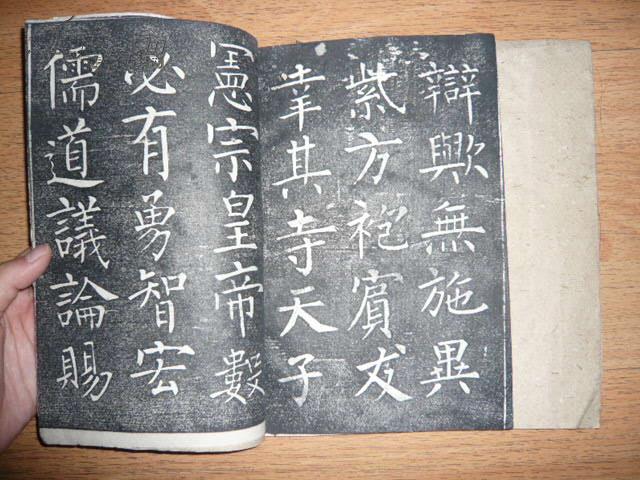 辯歟無施異
紫方袍賓友
幸其寺天子
憲宗皇帝數
必有勇智宏
儒道議論賜